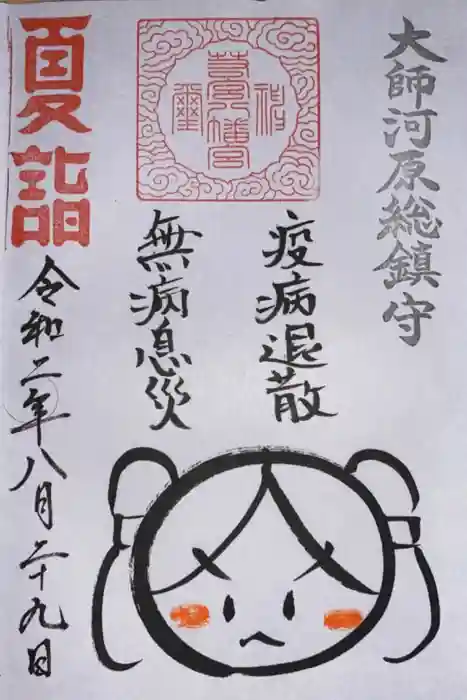 大師河原総鎮守
疫病退散
無病息災
夏詣
令和二年八月二十九日